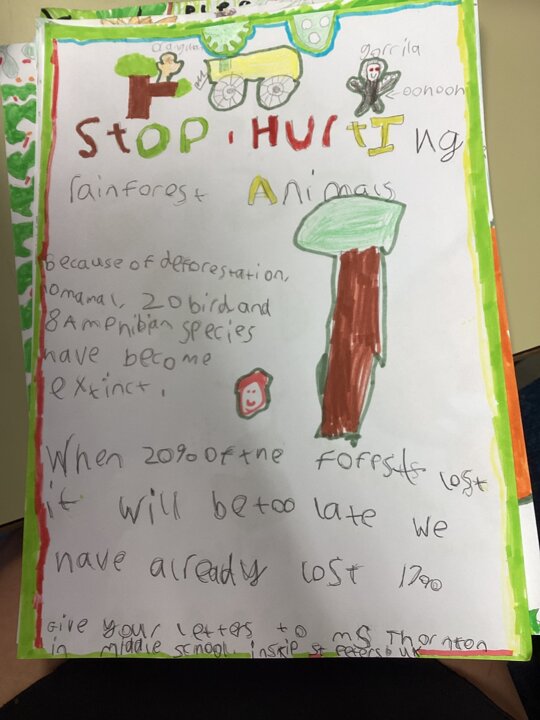 gorrila
oohooh
StOP. HURtIng
rainforest Animals
Because of deforestation,
20 bird and
8 Amenibian species
have become
extinct.
When 20% of the forests lost
it will be too late we
have already lost 17%
Give your letters to ms Thornton
in middle school,